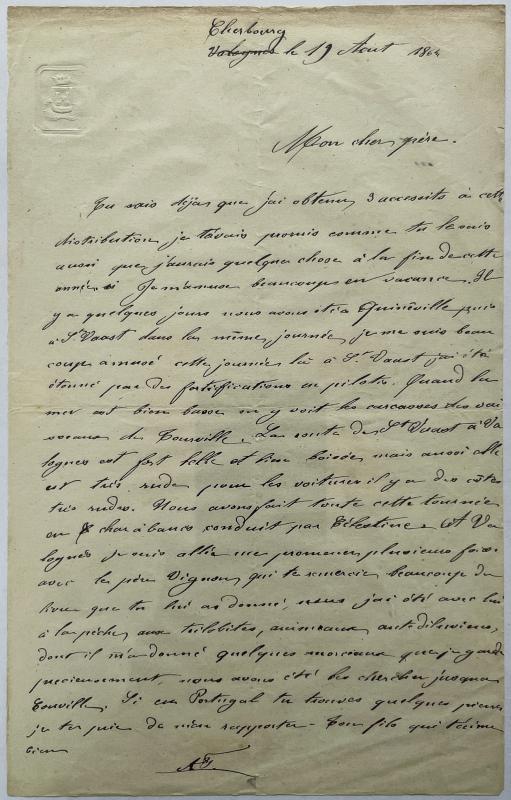 Cherbourg
Valognes le 19 Aout 186
Mon cher père.
Tu sais déjas que j'ai obtenu 3 accessits à cette
distribution je t'avais promis comme tu le sais
aussi que j'aurais quelque chose à la fin de cette
année. Je m'amuse beaucoup en vacance. Il
y a quelques jours nous avons été à Quinéville puis
à St Vaast dans la même journée, je me suis beau
coup amusé cette journée là à St Vaast j'ai été
étonné par des fortifications en pilotis. Quand la
mer est bien basse on y voit les carcasses des vai
sseaux de Tourville. La route de St Vaast à Va
lognes est fort belle et bien boisée mais aussi elle
est très rude pour les voitures il y a des côtes
très rudes. Nous avons fait toute cette tournée
en char à bancs conduit par Célestine. A Va
lognes je suis allé me promener plusieurs fois
avec le père Vignon, qui te remercie beaucoup du
livre que tu lui as donné, nous j'ai été avec lui
à la pêche aux trilobites, animaux anti-diluviens,
dont il m'a donné quelques morceaux que je garde
precieusement, nous avons été les chercher jusque
Si en Portugal tu trouves quelques pierres
je te prie de m'en rapporter. Ton fils qui t'aime
bien